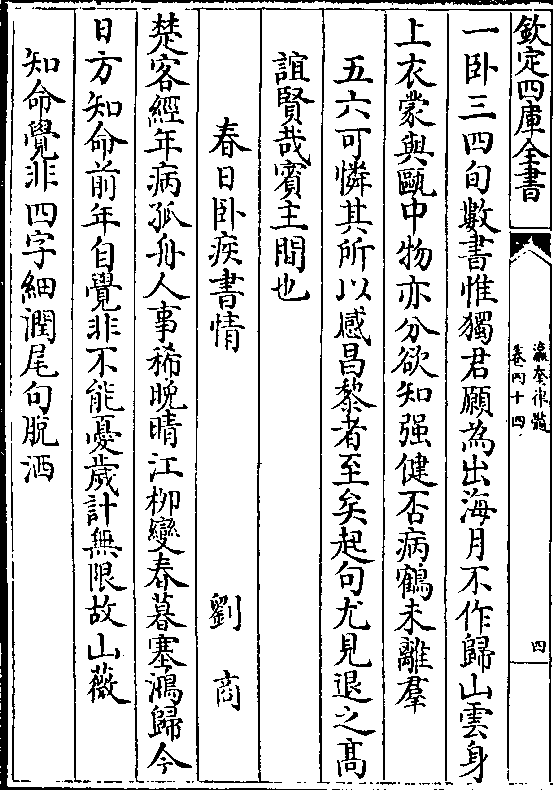 欽定四庫全書
瀛奎律髓
卷四十四
四
一卧三四旬數書惟獨君願為出海月不作歸山雲身
上衣蒙與甌中物亦分欲知强健否病鶴未離羣
五六可憐其所以感昌黎者至矣起句尤見退之髙
誼賢哉賓主間也
春日卧疾書情　劉商
楚客經年病孤舟人事稀晚晴江柳變春暮塞鴻歸今
日方知命前年自覺非不能憂歲計無限故山薇
知命覺非四字細潤尾句脫洒